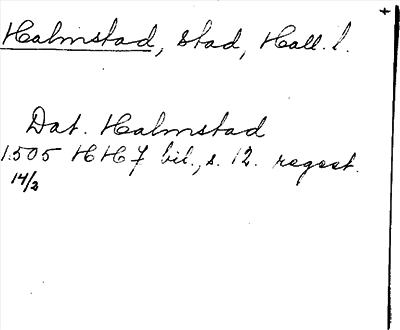 Halmstad, stad, Hall. l.
Dat. Halmstad
1505 HH 7 bil., s. 12. regest.
14/3